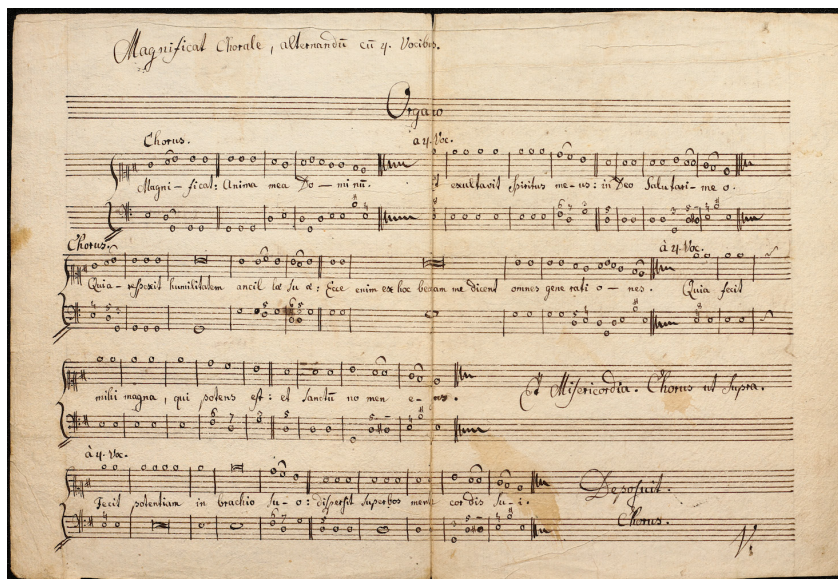 Magnificat Chorale, alternandū cū 4. Vocibus.
Organo
Chorus. à 4. Voc.
Magni - ficat: Anima mea Do - mi nū. Et exultavit Spiritus me - us: in Deo Salutari - me o.
Chorus. à 4. Voc.
Quia - respexit humilitatem ancil læ su æ: Ecce enim ex hoc beatam me dicent omnes gene rati o - nes. Quia fecit
mihi magna, qui potens est: et Sanctū no men e - ius.
Et Misericordia. Chorus ut supra.
à 4. Voc.
Fecit potentiam in brachio su - o: dispersit superbos mente cordis su - i.
Deposuit.
Chorus.